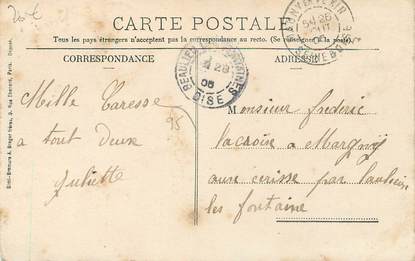 20 €
CARTE POSTALE
Tous les pays étrangers n'acceptent pas la correspondance au recto. (Se renseigner à la poste).
CORRESPONDANCE
ADRESSE
BEAULIEU-LES-FONTAINES
28
06
OISE
SEINE & OISE
Mille Caresse
a tout deux
Juliette
95
Monsieur frederic
lacroix a Margny
aux cerisse par beaulieu
les fontaine